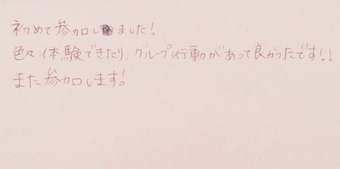 初めて参加しました!
色々体験できたり、グループ行動があって良かったです!!
また参加します!